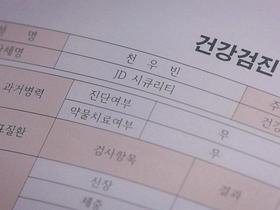 건강검진
성 명 천 우 빈 주
회사세명 JD 시큐리티
과거병력 진단여부 무 건강
약물치료여부 무
검사항목 결과
신장
체중